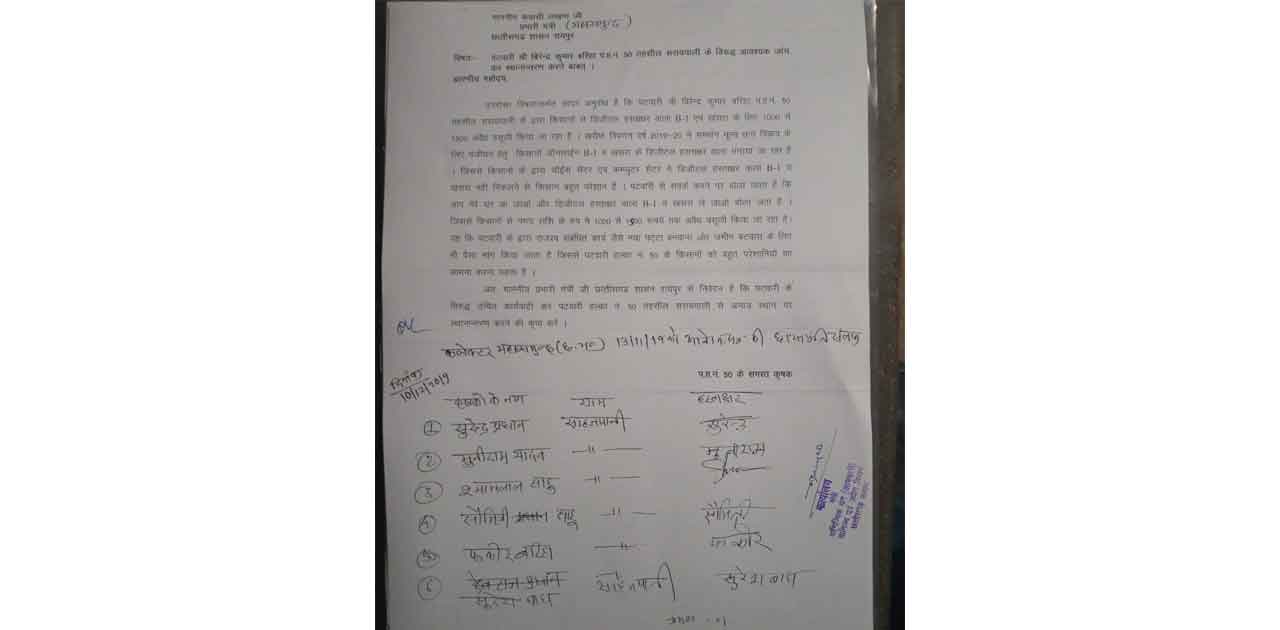 माननीय कवासी लखमा जी
प्रभारी मंत्री (महासमुन्द)
छत्तीसगढ़ शासन रायपुर
विषयः- पटवारी श्री बिरेन्द्र कुमार बरिहा प.ह.नं. 50 तहसील सरायपाली के विरुद्ध आवश्यक जांच
कर स्थानान्तरण करने बाबत् ।
माननीय महोदय,
उपरोक्त विषयान्तर्गत सादर अनुरोध है कि पटवारी श्री बिरेन्द्र कुमार बरिहा प.ह.नं. 50
तहसील सरायपाली के द्वारा किसानों से डिजीटल हस्ताक्षर वाला B-1 एवं खसरा के लिए 1000 से
1500 अवैध वसूली किया जा रहा है । खरीफ विपणन वर्ष 2019-20 में समर्थन मूल्य धान विक्रय के
लिए पंजीयन हेतु किसानों ऑनलाईन B-1 व खसरा के डिजीटल हस्ताक्षर वाला मंगाया जा रहा है
। जिससे किसानों के द्वारा चॉईस सेंटर एवं कम्प्युटर सेंटर में डिजीटल हस्ताक्षर वाला B-1 व
खसरा नही निकलने से किसान बहुत परेशान है । पटवारी से संपर्क करने पर बोला जाता है कि
आप मेरे घर आ जाओ और डिजीटल हस्ताक्षर वाला B-1 व खसरा ले जाओ बोला जाता है ।
जिससे किसानों से नगद राशि के रुप में 1000 से 1500 रूपये तक अवैध वसूली किया जा रहा है।
यह कि पटवारी के द्वारा राजस्व संबंधित कार्य जैसे नया पट्टा बनवाना और जमीन बटवारा के लिए
भी पैसा मांग किया जाता है जिससे पटवारी हल्का नं. 50 के किसानों को बहुत परेशानियों का
सामना करना पड़ता है ।
अतः माननीय प्रभारी मंत्री जी छत्तीसगढ़ शासन रायपुर से निवेदन है कि पटवारी के
विरुद्ध उचित कार्यवाही कर पटवारी हल्का नं 50 तहसील सरायपाली से अन्यत्र स्थान पर
स्थानान्तरण करने की कृपा करें ।
कलेक्टर महासमुन्द (छ.ग.) 13/11/19 को आवेदन की छायाप्रति संलग्न
प.ह.नं. 50 के समस्त कृषक
दिनांक
10/12/2019
कृषकों के नाम ग्राम हस्ताक्षर
① सुरेन्द्र प्रधान सुरेन्द्र
② मुनीराम यादव —॥— मुनीराम
③ श्यामलाल साहू —॥—
④ सौमित्री साहू —॥— सौमित्री
⑤ फकीर बरिहा —॥— फकीर
⑥ सुरेश बाघ सुरेश बाघ
कार्यालय
मंत्री
वाणिज्यिक कर (आबकारी)
वाणिज्य एवं उद्योग विभाग
छत्तीसगढ़ शासन